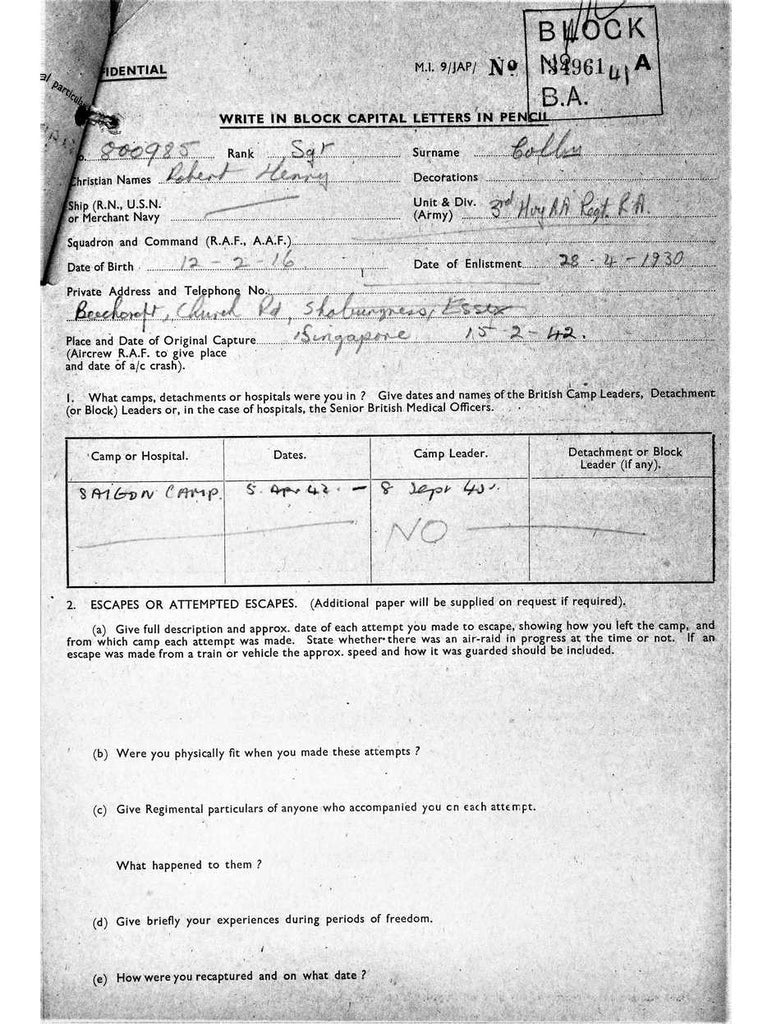 BLOCK
FIDENTIAL
M.I. 9/JAP/ No 34961 41 A
B.A.
WRITE IN BLOCK CAPITAL LETTERS IN PENCIL
o. 800985 Rank Sgt Surname
Christian Names Robert Henry Decorations
Ship (R.N., U.S.N. or Merchant Navy Unit & Div. (Army) 3rd Hvy AA Regt. R.A.
Squadron and Command (R.A.F., A.A.F.)
Date of Birth 12-2-16 Date of Enlistment 28-4-1930
Private Address and Telephone No.
Beechcroft, Church Rd, Shoburyness, Essex
Place and Date of Original Capture Singapore 15-2-42.
(Aircrew R.A.F. to give place
and date of a/c crash).
1. What camps, detachments or hospitals were you in ? Give dates and names of the British Camp Leaders, Detachment
(or Block) Leaders or, in the case of hospitals, the Senior British Medical Officers.
Camp or Hospital. Dates. Camp Leader. Detachment or Block
Leader (if any).
SAIGON CAMP. 5. Apr 42. - 8 Sept 45.
NO
2. ESCAPES OR ATTEMPTED ESCAPES. (Additional paper will be supplied on request if required).
(a) Give full description and approx. date of each attempt you made to escape, showing how you left the camp, and
from which camp each attempt was made. State whether there was an air-raid in progress at the time or not. If an
escape was made from a train or vehicle the approx. speed and how it was guarded should be included.
(b) Were you physically fit when you made these attempts ?
(c) Give Regimental particulars of anyone who accompanied you on each attempt.
What happened to them ?
(d) Give briefly your experiences during periods of freedom.
(e) How were you recaptured and on what date ?